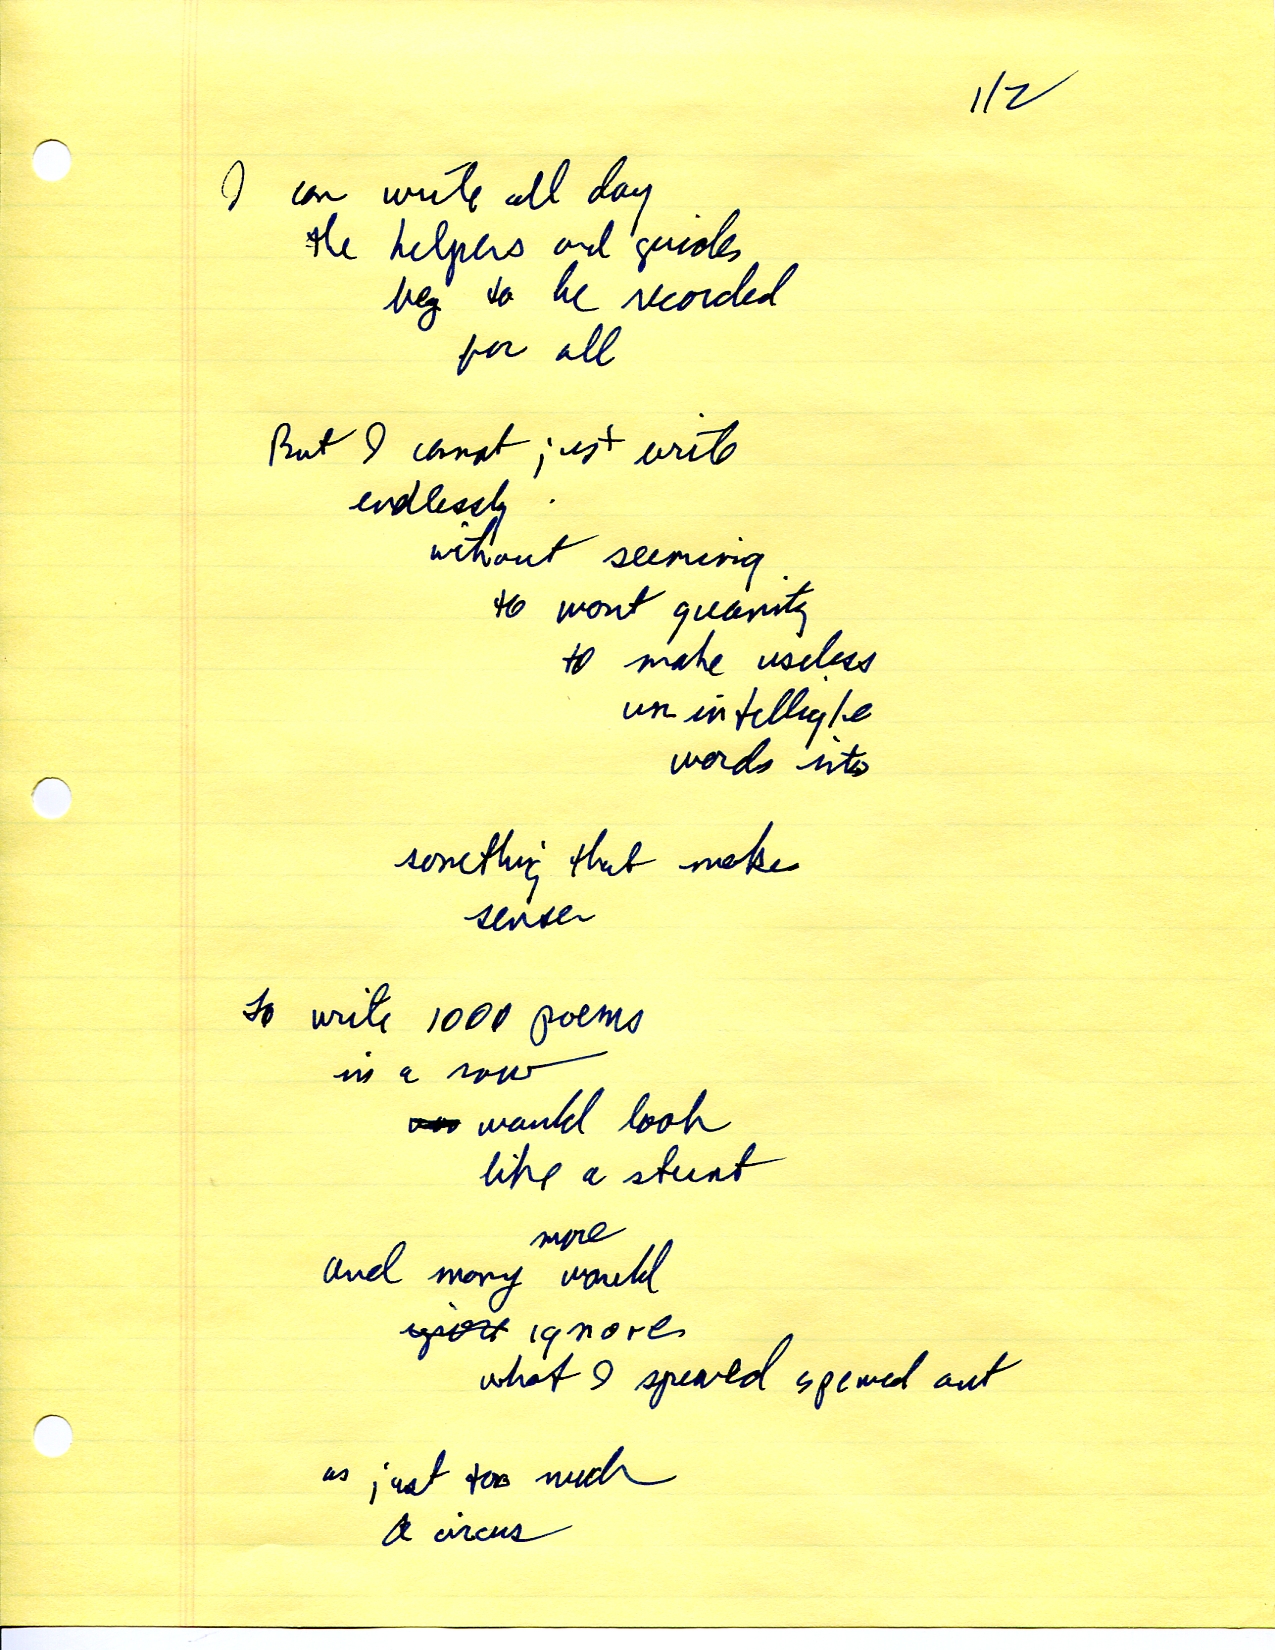 1/2
I can write all day
the helpers and guides
beg to be recorded
for all
But I cannot just write
endlessly.
without seeming
to want quanity
to make useless
un intelligle
words into
something that make
sense
To write 1000 poems
in a row
would look
like a stunt
more
and many would
ignore
what I spewed spewed out
as just too much
a circus